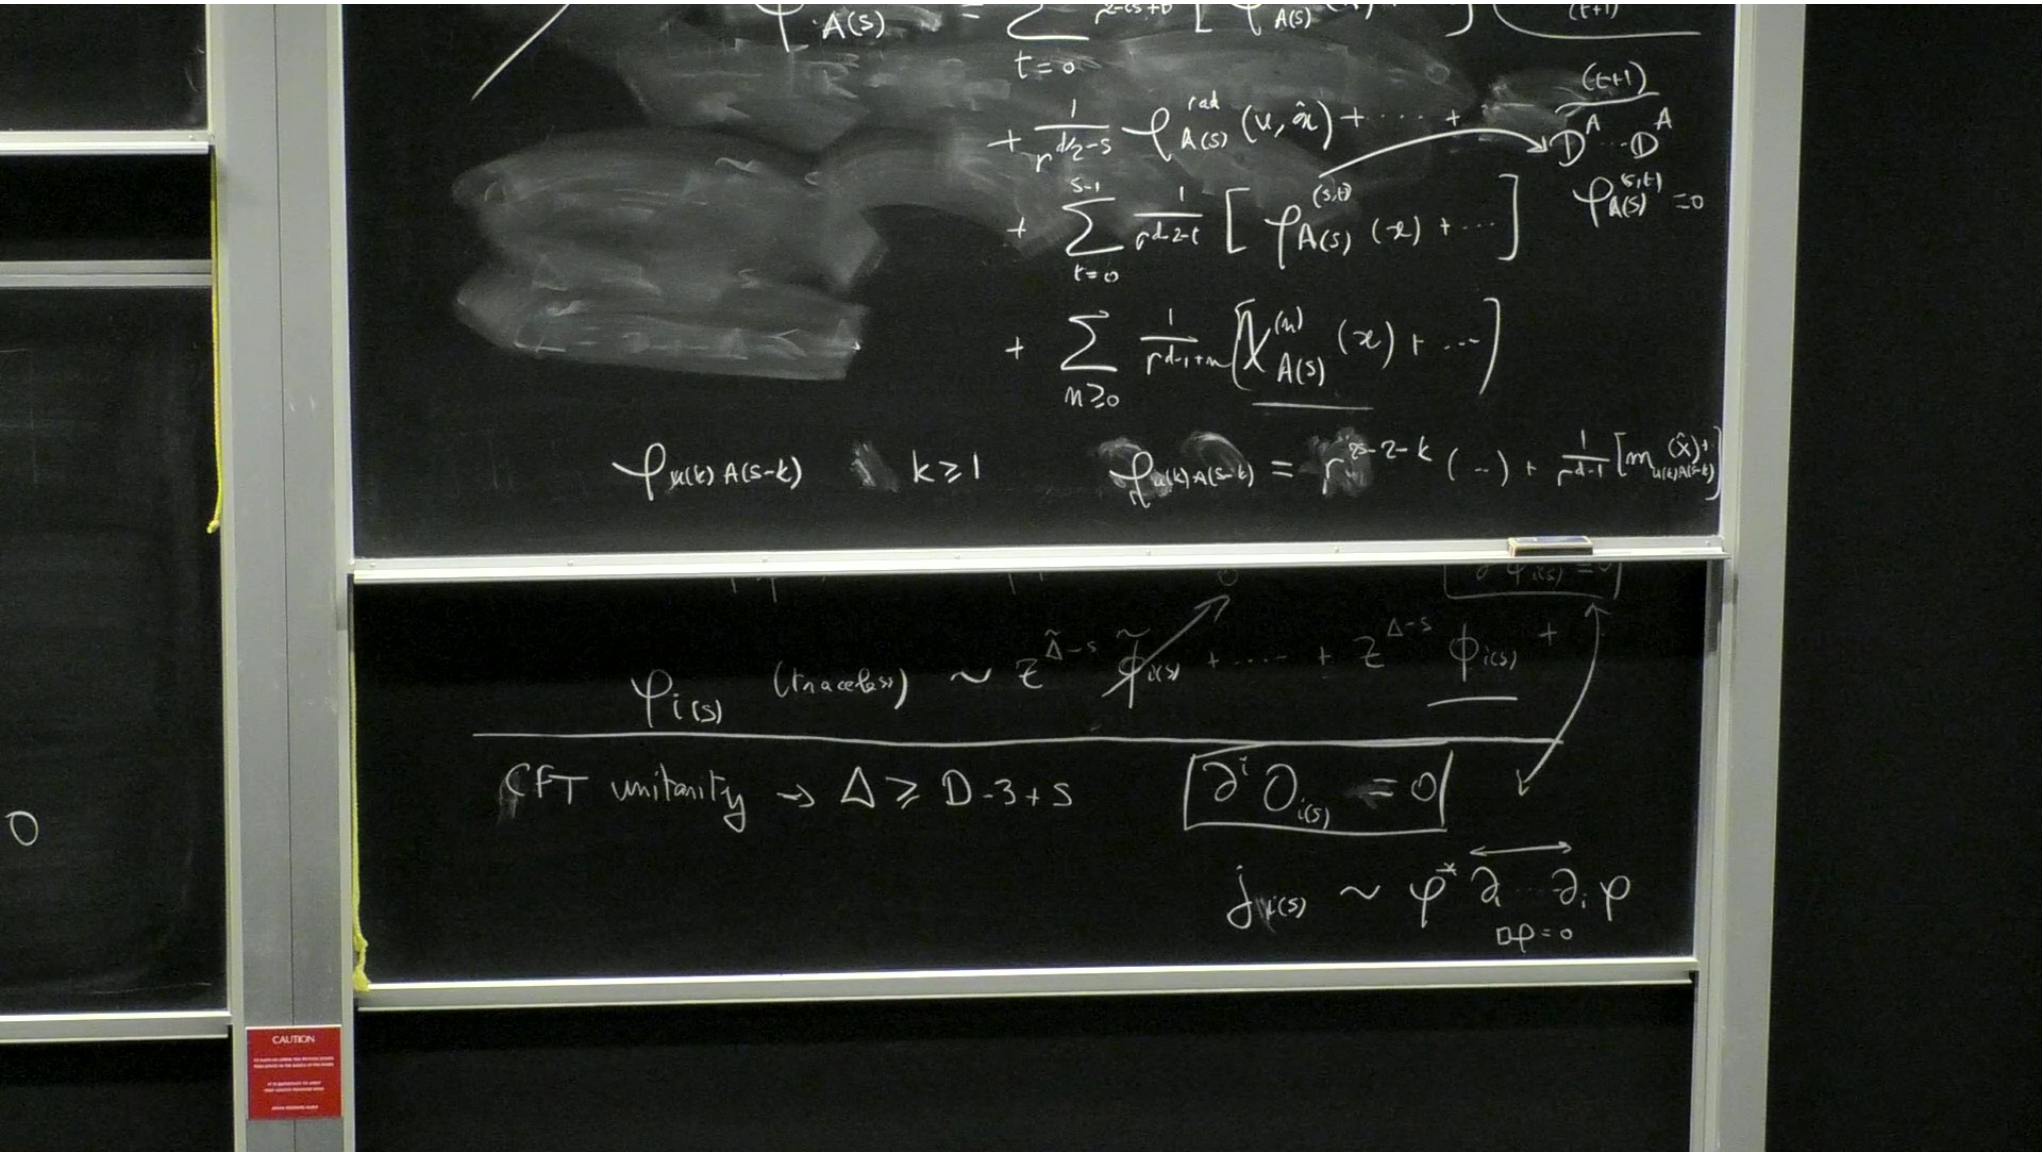 φ_{A(s)} = Σ_{t=0} [ φ_{A(s)}
(t+1)
+ 1/r^{d/2-s} φ^{rad}_{A(s)} (u, x̂) + ···· +
(t+1)
D^A ··· D^A
φ^{(s,t)}_{A(s)} = 0
+ Σ_{t=0}^{s-1} 1/r^{d-2-t} [ φ^{(s,t)}_{A(s)} (x) + ··· ]
+ Σ_{n≥0} 1/r^{d-1+n} [ χ^{(n)}_{A(s)} (x) + ··· ]
φ_{u(k) A(s-k)} k ≥ 1 φ_{u(k) A(s-k)} = r^{2s-2-k} (··) + 1/r^{d-1} [ m_{u(k)A(s-k)} (x̂) + ]
0
φ_{i(s)} (traceless) ~ z^{Δ̃-s} φ̃_{i(s)} + ···· + z^{Δ-s} φ_{i(s)} +
CFT unitarity → Δ ≥ D-3+s ∂^i O_{i(s)} = 0
j_{i(s)} ~ φ* ∂_i ··· ∂_i φ
□φ = 0
0
CAUTION